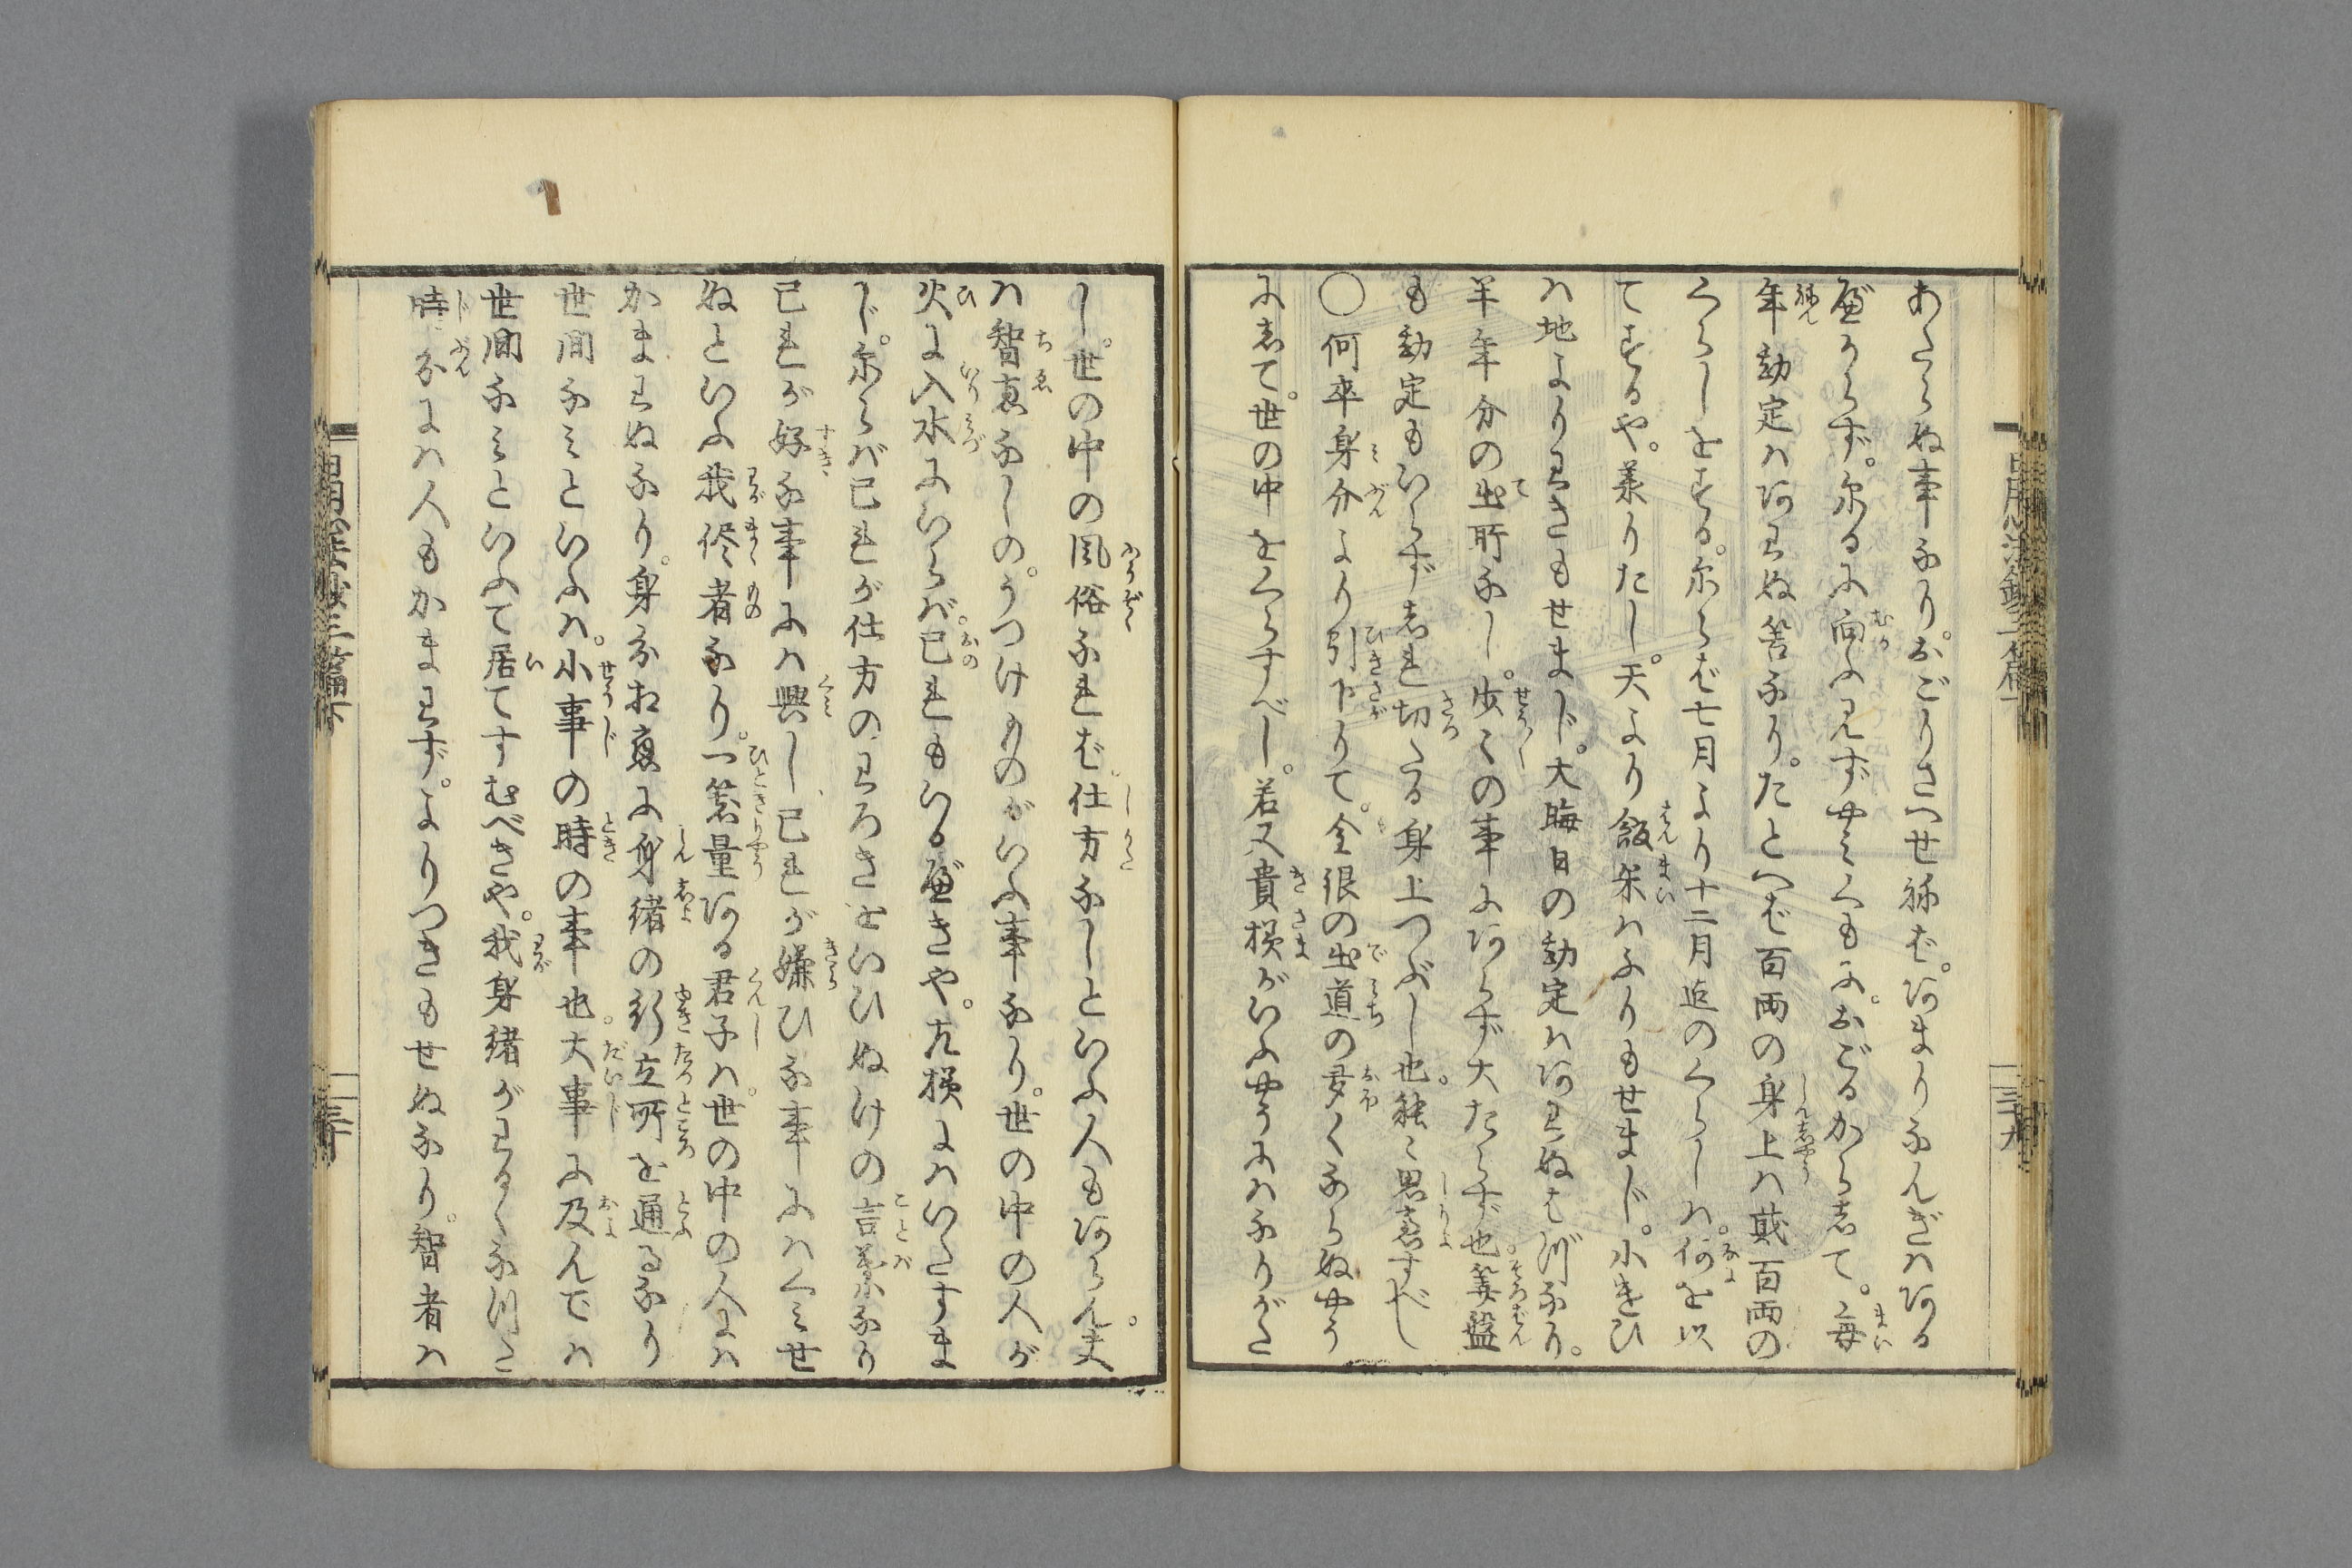 あたらぬ事なり。おごりさへせねば。あまりなんぎハある
べからず。尓るに向ふ見ずやミくもに。おごるからして。毎
年勘定ハあハぬ筈なり。たとへば百両の身上ハ貮百両の
くらしをする。尓らば七月より十二月迄のくらしハ。何を以
てするや。義りたし。天より飯米ハふりもせまじ。小遣ひ
ハ地よりわきもせまじ。大晦日の勘定ハあハぬはづなり。
半年分の出所なし。少〻の事にあらず大たらず也。算盤
も勘定もいらずしれ切たる身上つぶし也。能〻思慮すべし
〇何卒身分より引下りて。金銀の出道の多くならぬやう
にして。世の中をくらすべし。若又貴様がいふやうにハなりがた
し。世の中の風俗なれば。仕方なしといふ人もあらん。夫
ハ智恵なしの。うつけものがいふ事なり。世の中の人が
火に入水にいらば。己れもいるべきや。左様にハいたすま
じ。尓らバ己れが仕方のわろきをいひぬけの言葉なり
己れが好な事にハ興し、己れが嫌ひな事にハくミ世
ぬといふ我侭者なり。一器量ある君子ハ。世の中の人にハ
かまわぬなり。身分相應に身緒の行立所を通るなり
世間なミといふハ。小事の時の事也。大事に及んでハ
世間なミといふて居てすむべきや。我身緒がわるくなつた
時分にハ人もかまわず。よりつきもせぬなり。智者ハ